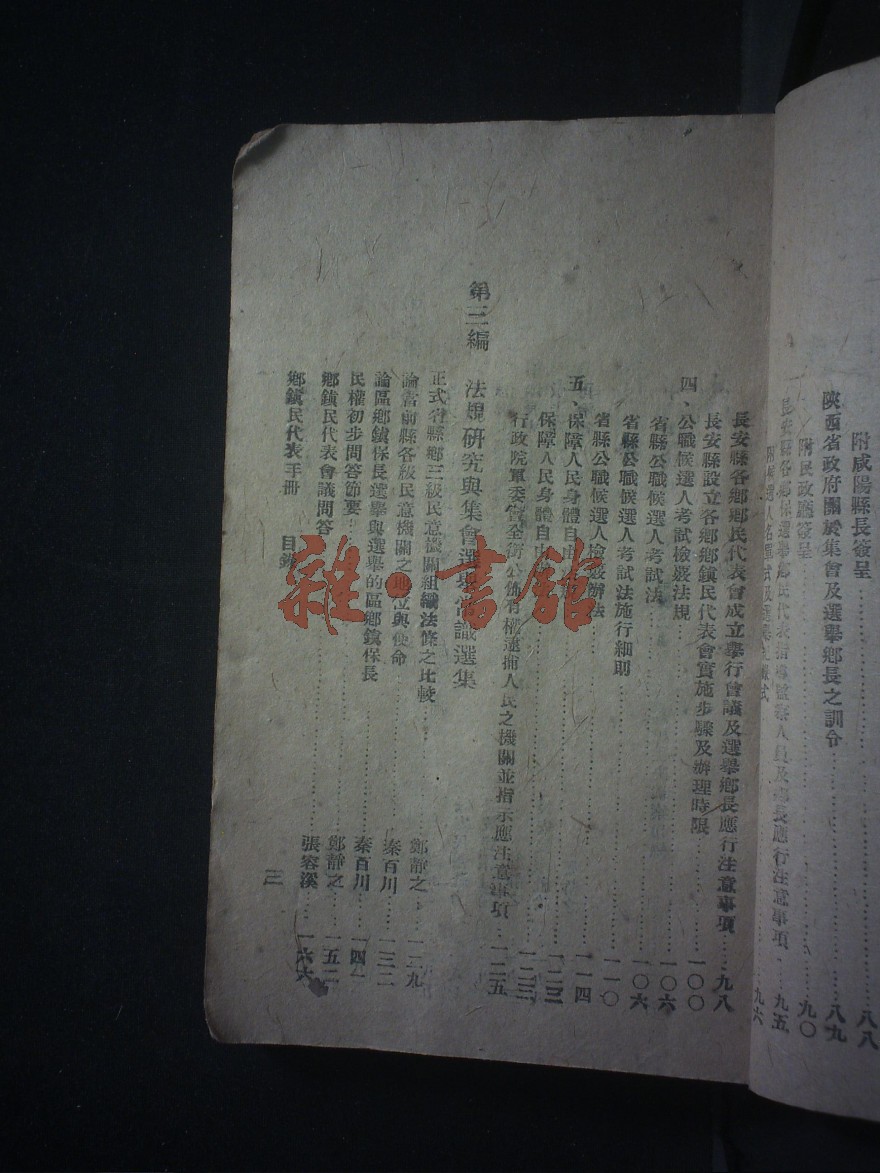 附咸陽縣長簽呈……八八
陝西省政府關於集會及選舉鄉長之訓令……八九
附民政廳簽呈……九〇
長安縣各鄉保選舉鄉民代表指導監察人員及鄉長應行注意事項……九五
九六
長安縣各鄉鄉民代表會成立舉行會議及選舉鄉長應行注意事項……九八
長安縣設立各鄉鄉鎮民代表會實施步驟及辦理時限……一〇〇
四、公職候選人考試檢覈法規
省縣公職候選人考試法……一〇六
省縣公職候選人考試法施行細則……一〇六
省縣公職候選人檢覈辦法……一一〇
五、保障人民身體自由……一一四
保障人民身體自由……一二三
行政院軍委會全銜公佈有權逮捕人民之機關並指示應注意事項……一二五
第三編 法規研究與集會選舉常識選集
正式省縣鄉三級民意機關組織法條之比較……鄭靜之……一二九
論當前縣各級民意機關之地位與使命……秦百川……一三二
論區鄉鎮保長選舉與選舉的區鄉鎮保長……秦百川……一四一
民權初步問答節要……鄭靜之……一五二
鄉鎮民代表會議問答……張容溪……一六六
鄉鎮民代表手冊 目錄 三
雜·書館